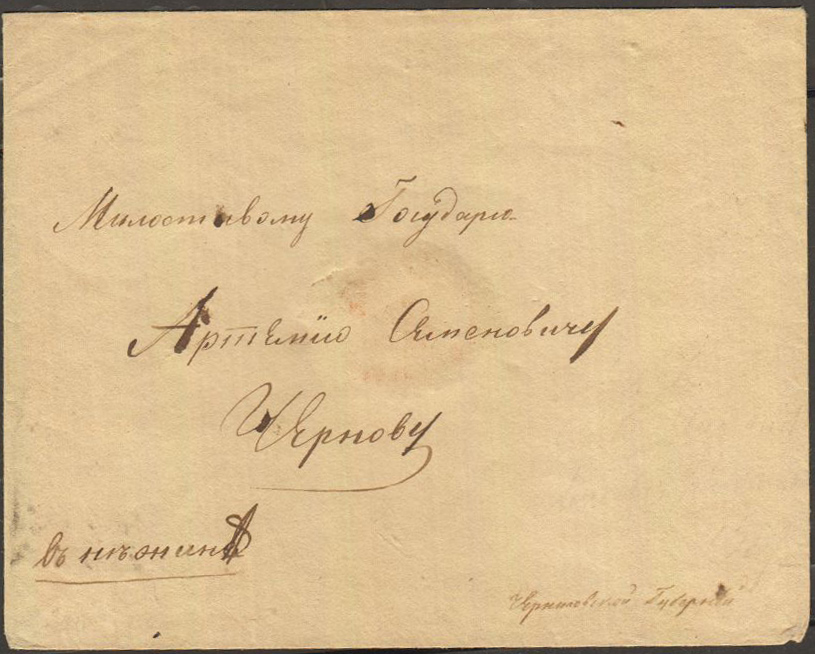 Милостивому Государю
Артемію Семеновичу
Чернову
въ Нѣжинѣ
Черниговской Губерніи